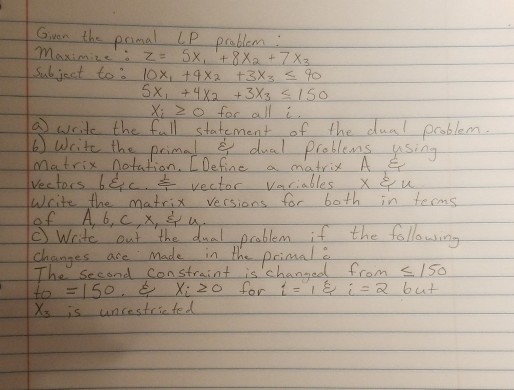 Given the primal LP problem :
Maximize : Z = 5X₁ + 8X₂ + 7X₃
Subject to : 10X₁ + 9X₂ + 3X₃ ≤ 90
5X₁ + 4X₂ + 3X₃ ≤ 150
Xi ≥ 0 for all i.
a) write the full statement of the dual problem.
b) Write the primal & dual problems using
matrix notation. [Define a matrix A &
vectors b & c. & vector variables X & u
Write the matrix versions for both in terms
of A, b, c, x, & u.
c) Write out the dual problem if the following
changes are made in the primal :
The second constraint is changed from ≤ 150
to = 150. & Xi ≥ 0 for i = 1 & i = 2 but
X₃ is unrestricted